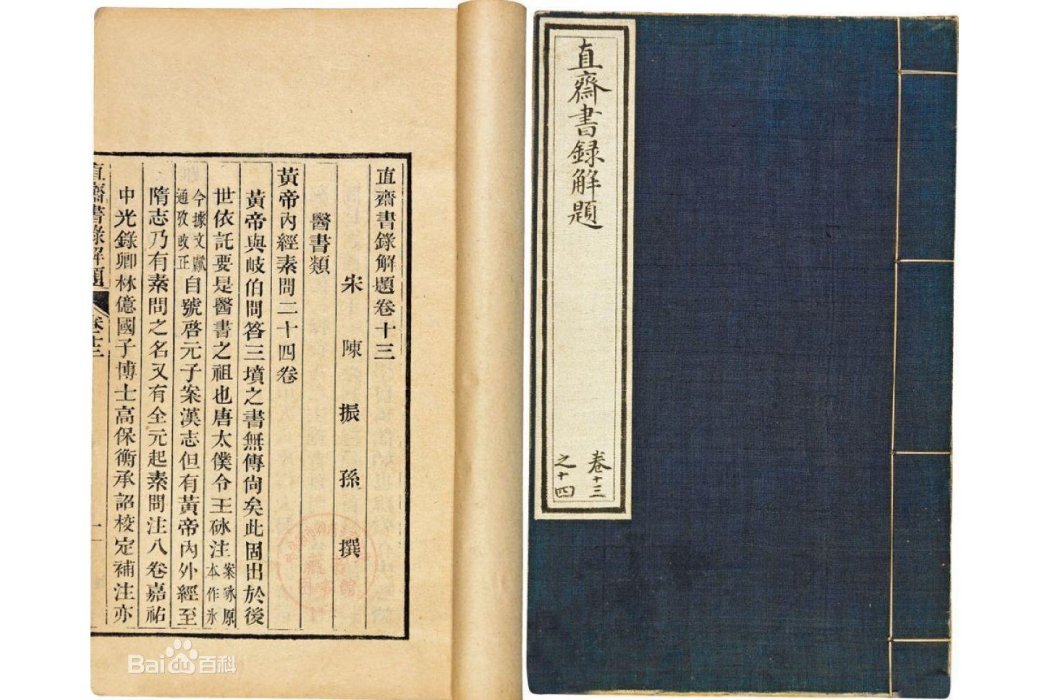 直齋書録解題
卷十三
之十四
直齋書錄解題卷十三
宋 陳 振 孫 撰
醫書類
黃帝內經素問二十四卷
黃帝與岐伯問答三墳之書無傳尚矣此固出於後
世依託要是醫書之祖也唐太僕令王砅注案砅原本作氷
今據文獻通攷改正自號啓元子案漢志但有黃帝內外經至
隋志乃有素問之名又有全元起素問注八卷嘉祐
中光錄卿林億國子博士高保衡承詔校定補注亦
直齋書錄解題 卷十三 一
Baidu百科